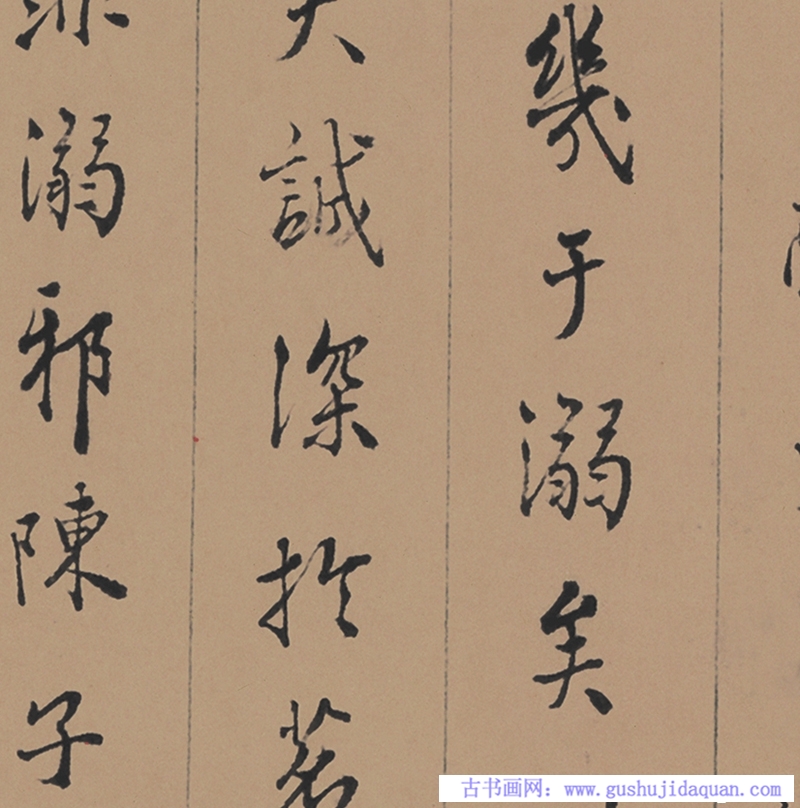 幾于溺矣
夫誠深於茗
溺邪陳子
古书画网：www.gushujidaquan.com